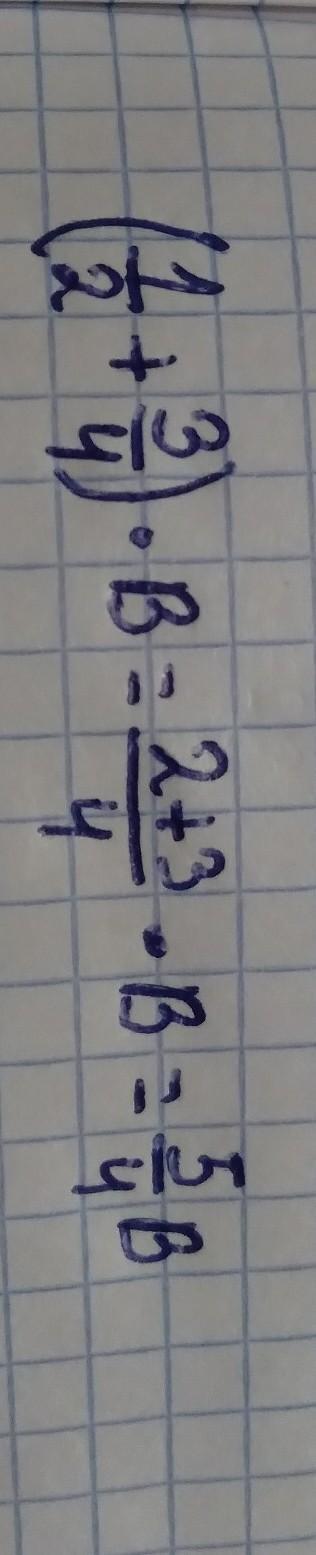 (1/2 + 3/4) · B = (2+3)/4 · B = 5/4 B